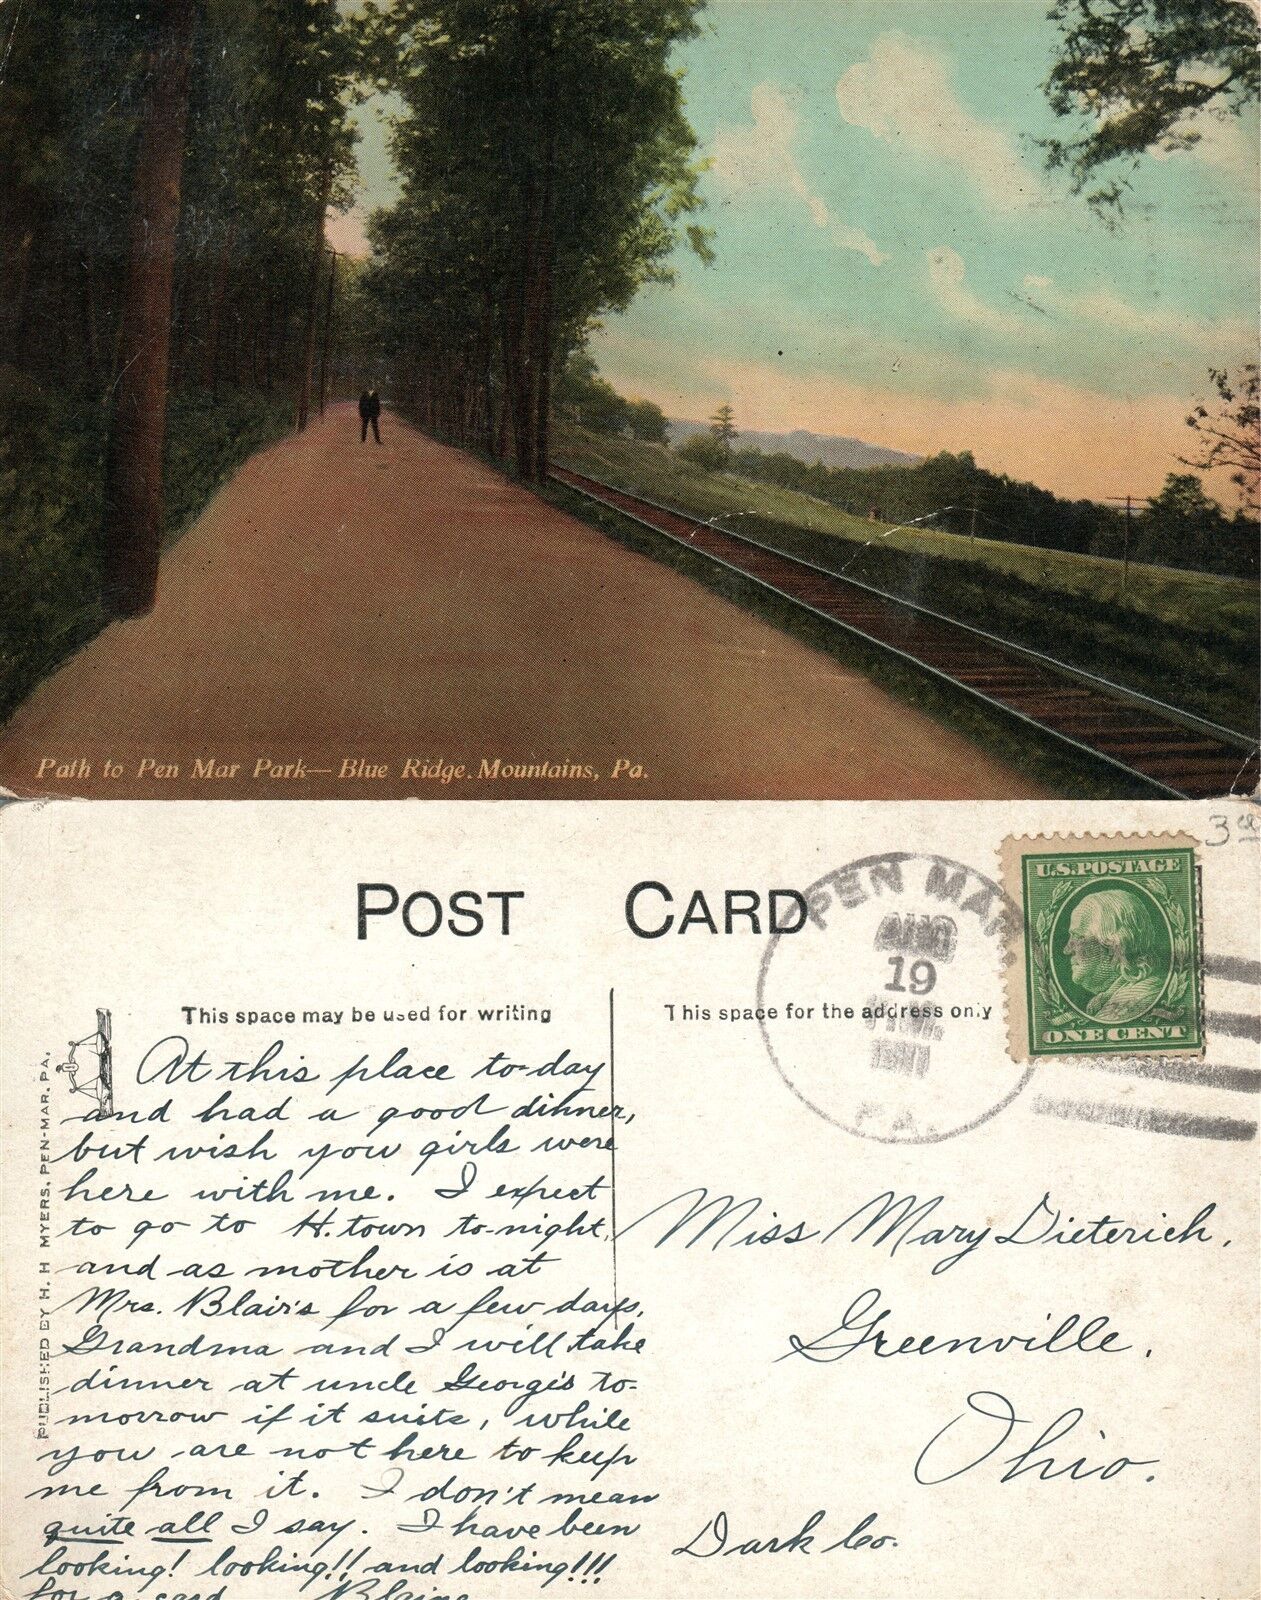 Path to Pen Mar Park—Blue Ridge Mountains, Pa.
3
POST CARD
PEN MAR.
AUG
19
PA.
U.S. POSTAGE
ONE CENT
This space may be used for writing
This space for the address only
PUBLISHED BY H. H MYERS, PEN-MAR, PA.
At this place to-day
and had a good dinner,
but wish you girls were
here with me. I expect
to go to H.town to-night,
and as mother is at
Mrs. Blair's for a few days,
Grandma and I will take
dinner at uncle George's to-
morrow if it suits, while
you are not here to keep
me from it. I don't mean
quite all I say. I have been
looking! looking!! and looking!!!
for a card Blaine
Miss Mary Dieterich,
Greenville,
Ohio.
Dark Co.